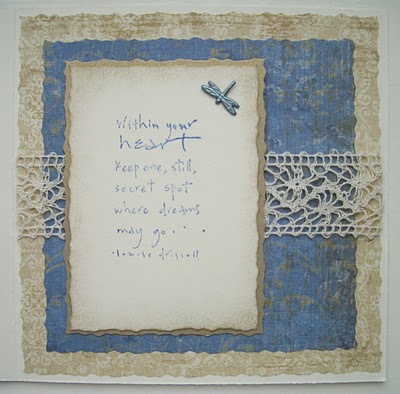 Within your
heart
keep one, still,
secret spot
where dreams
may go. . .
. louise driscoll